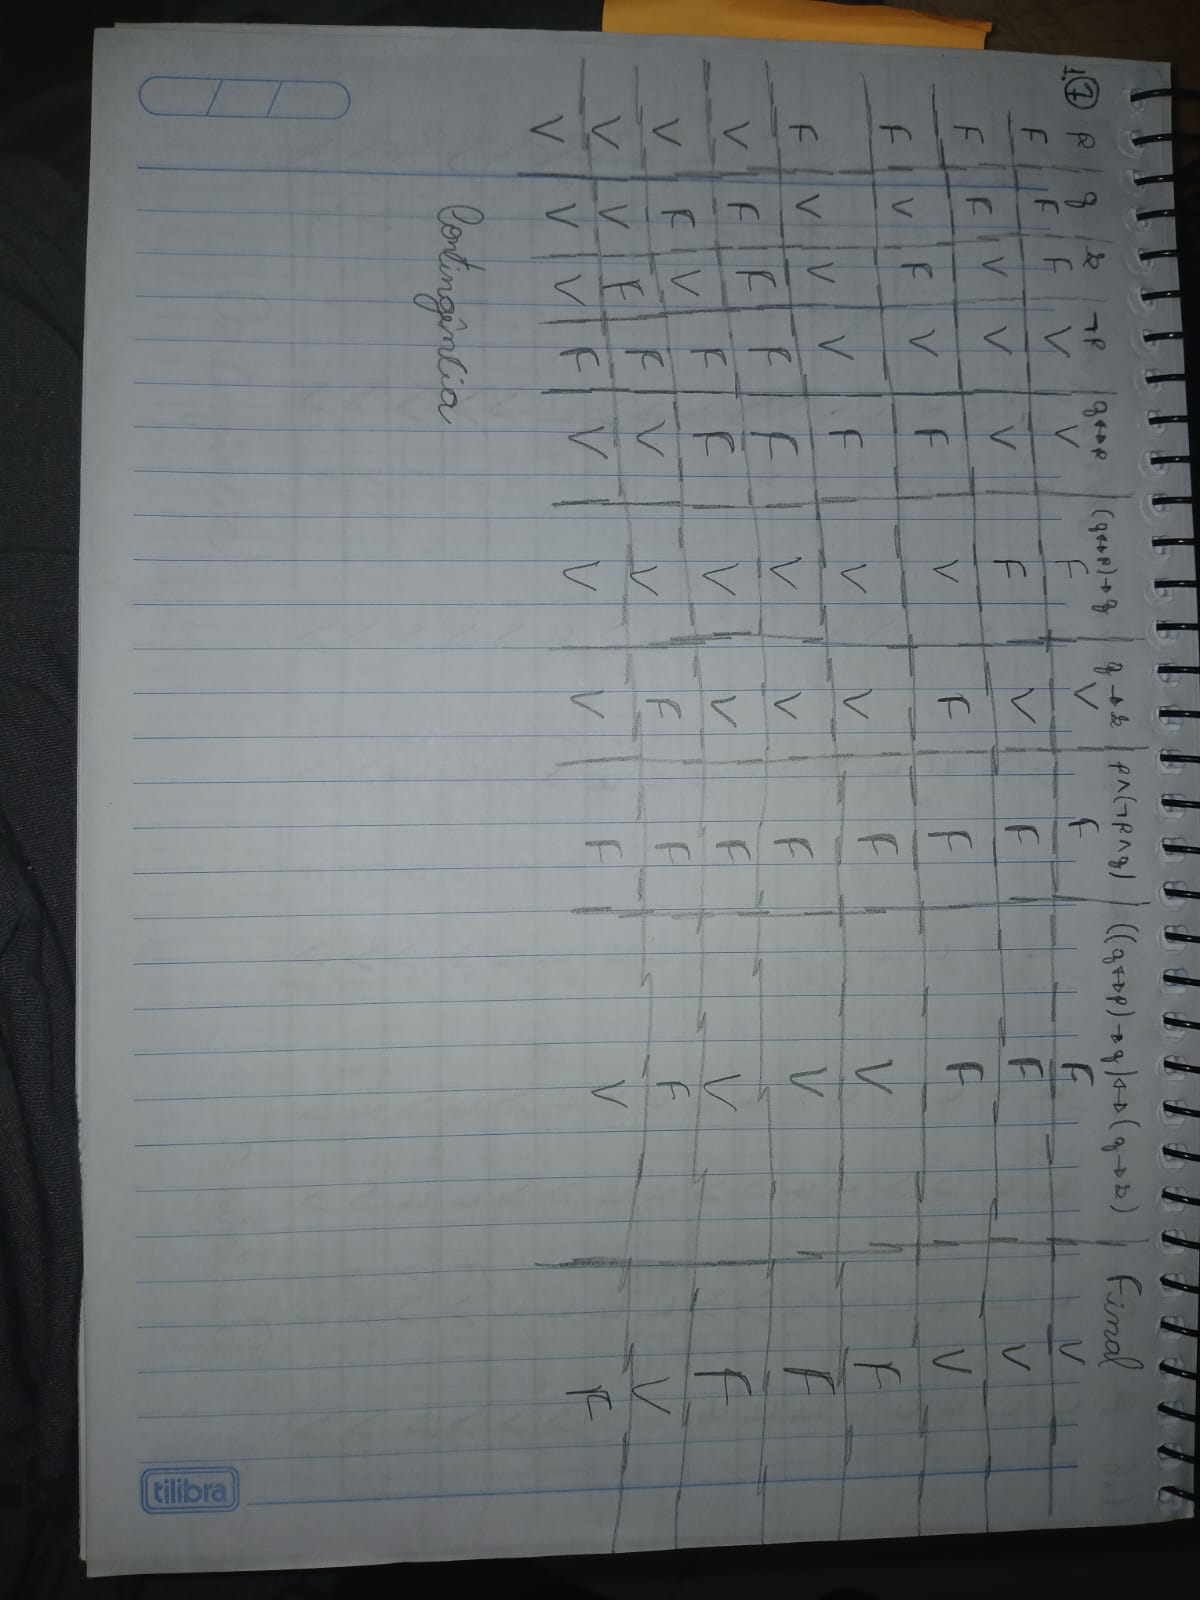 1.7 p q r ¬p q↔p (q↔p)→q q→r p∧(¬p∧q) ((q↔p)→q)↔(q→r) Final
F F F V V F V F F V
F F V V V F V F F V
F V F V F V F F F V
F V V V F V V F V F
V F F F F V V F V F
V F V F F V V F V F
V V F F V V F F F V
V V V F V V V F V F
Contingência
tilibra